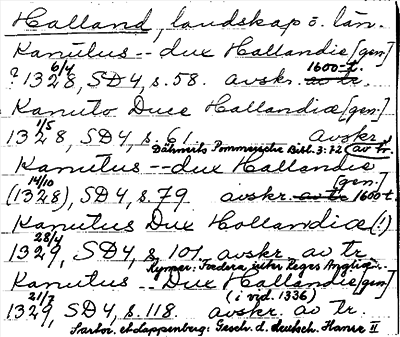 Halland, landskap o. län.
Kanutus -- dux Hallandie [gen]
1600-t.
6/4
? 1328, SD4, s. 58. avskr. av tr.
Kanuto Duce Hallandiæ [gen.]
1/5
1328, SD4, s. 61. avskr.
Dähnerts Pommersche Bibl. 3:72 (av tr.
Kanutus -- dux Hallandie
[gen.]
14/10
(1328), SD4, s. 79 avskr. av tr 1600 t.
Kanutus Dux Hollandiæ (!)
28/4
1329, SD4, s. 101 avskr. av tr
Rymer: Foedera inter Reges Angliæ..
Kanutus -- Dux Hallandie [gen]
(i vid. 1336)
21/7
1329, SD4, s. 118. avskr. av tr.
Sartor. et Lappenberg: Gesch. d. deutsch. Hanse II